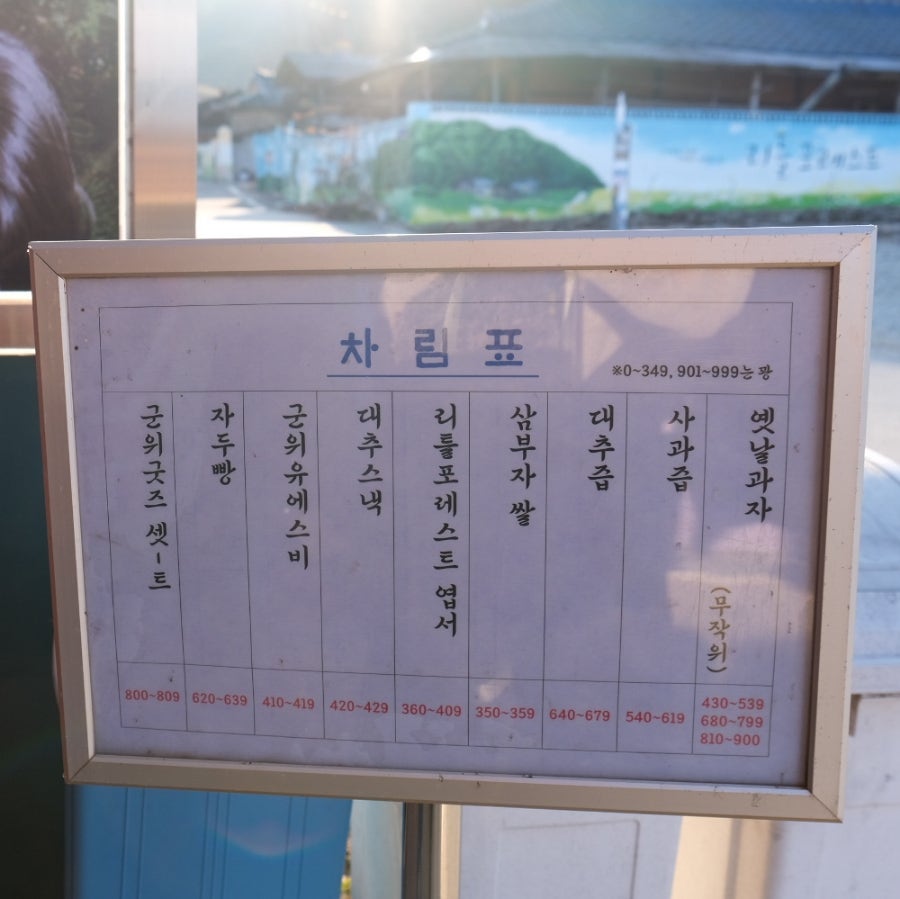 리틀 포레스트
차림표
※0~349, 901~999는 꽝
옛날과자
(무작위)
430~539
680~799
810~900
사과즙
540~619
대추즙
640~679
삼부자 쌀
350~359
리틀포레스트 엽서
360~409
대추스낵
420~429
군위유에스비
410~419
자두빵
620~639
군위굿즈 셋-트
800~809